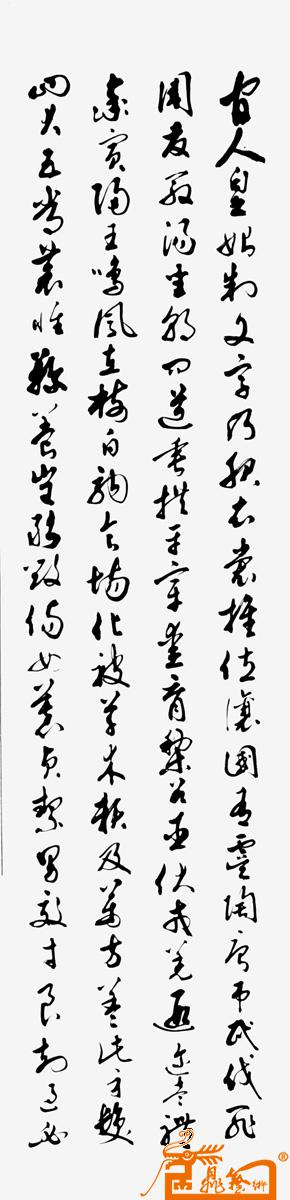 官人皇始制文字乃服衣裳推位讓國有虞陶唐弔民伐罪
周發殷湯坐朝問道垂拱平章愛育黎首臣伏戎羌遐邇壹體
率賓歸王鳴鳳在樹白駒食場化被草木賴及萬方蓋此身髮
四大五常恭惟鞠養豈敢毀傷女慕貞絜男效才良知過必